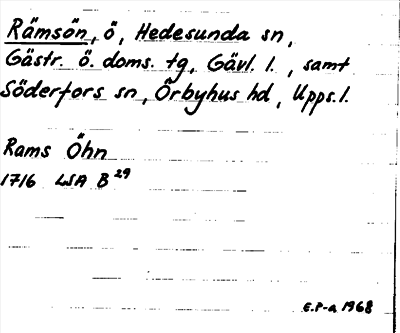 Rämsön, ö, Hedesunda sn,
Gästr. ö. doms. tg, Gävl. l., samt
Söderfors sn, Örbyhus hd, Upps. l.
Rams Öhn
1716 LSA B 29
E.P-a 1968